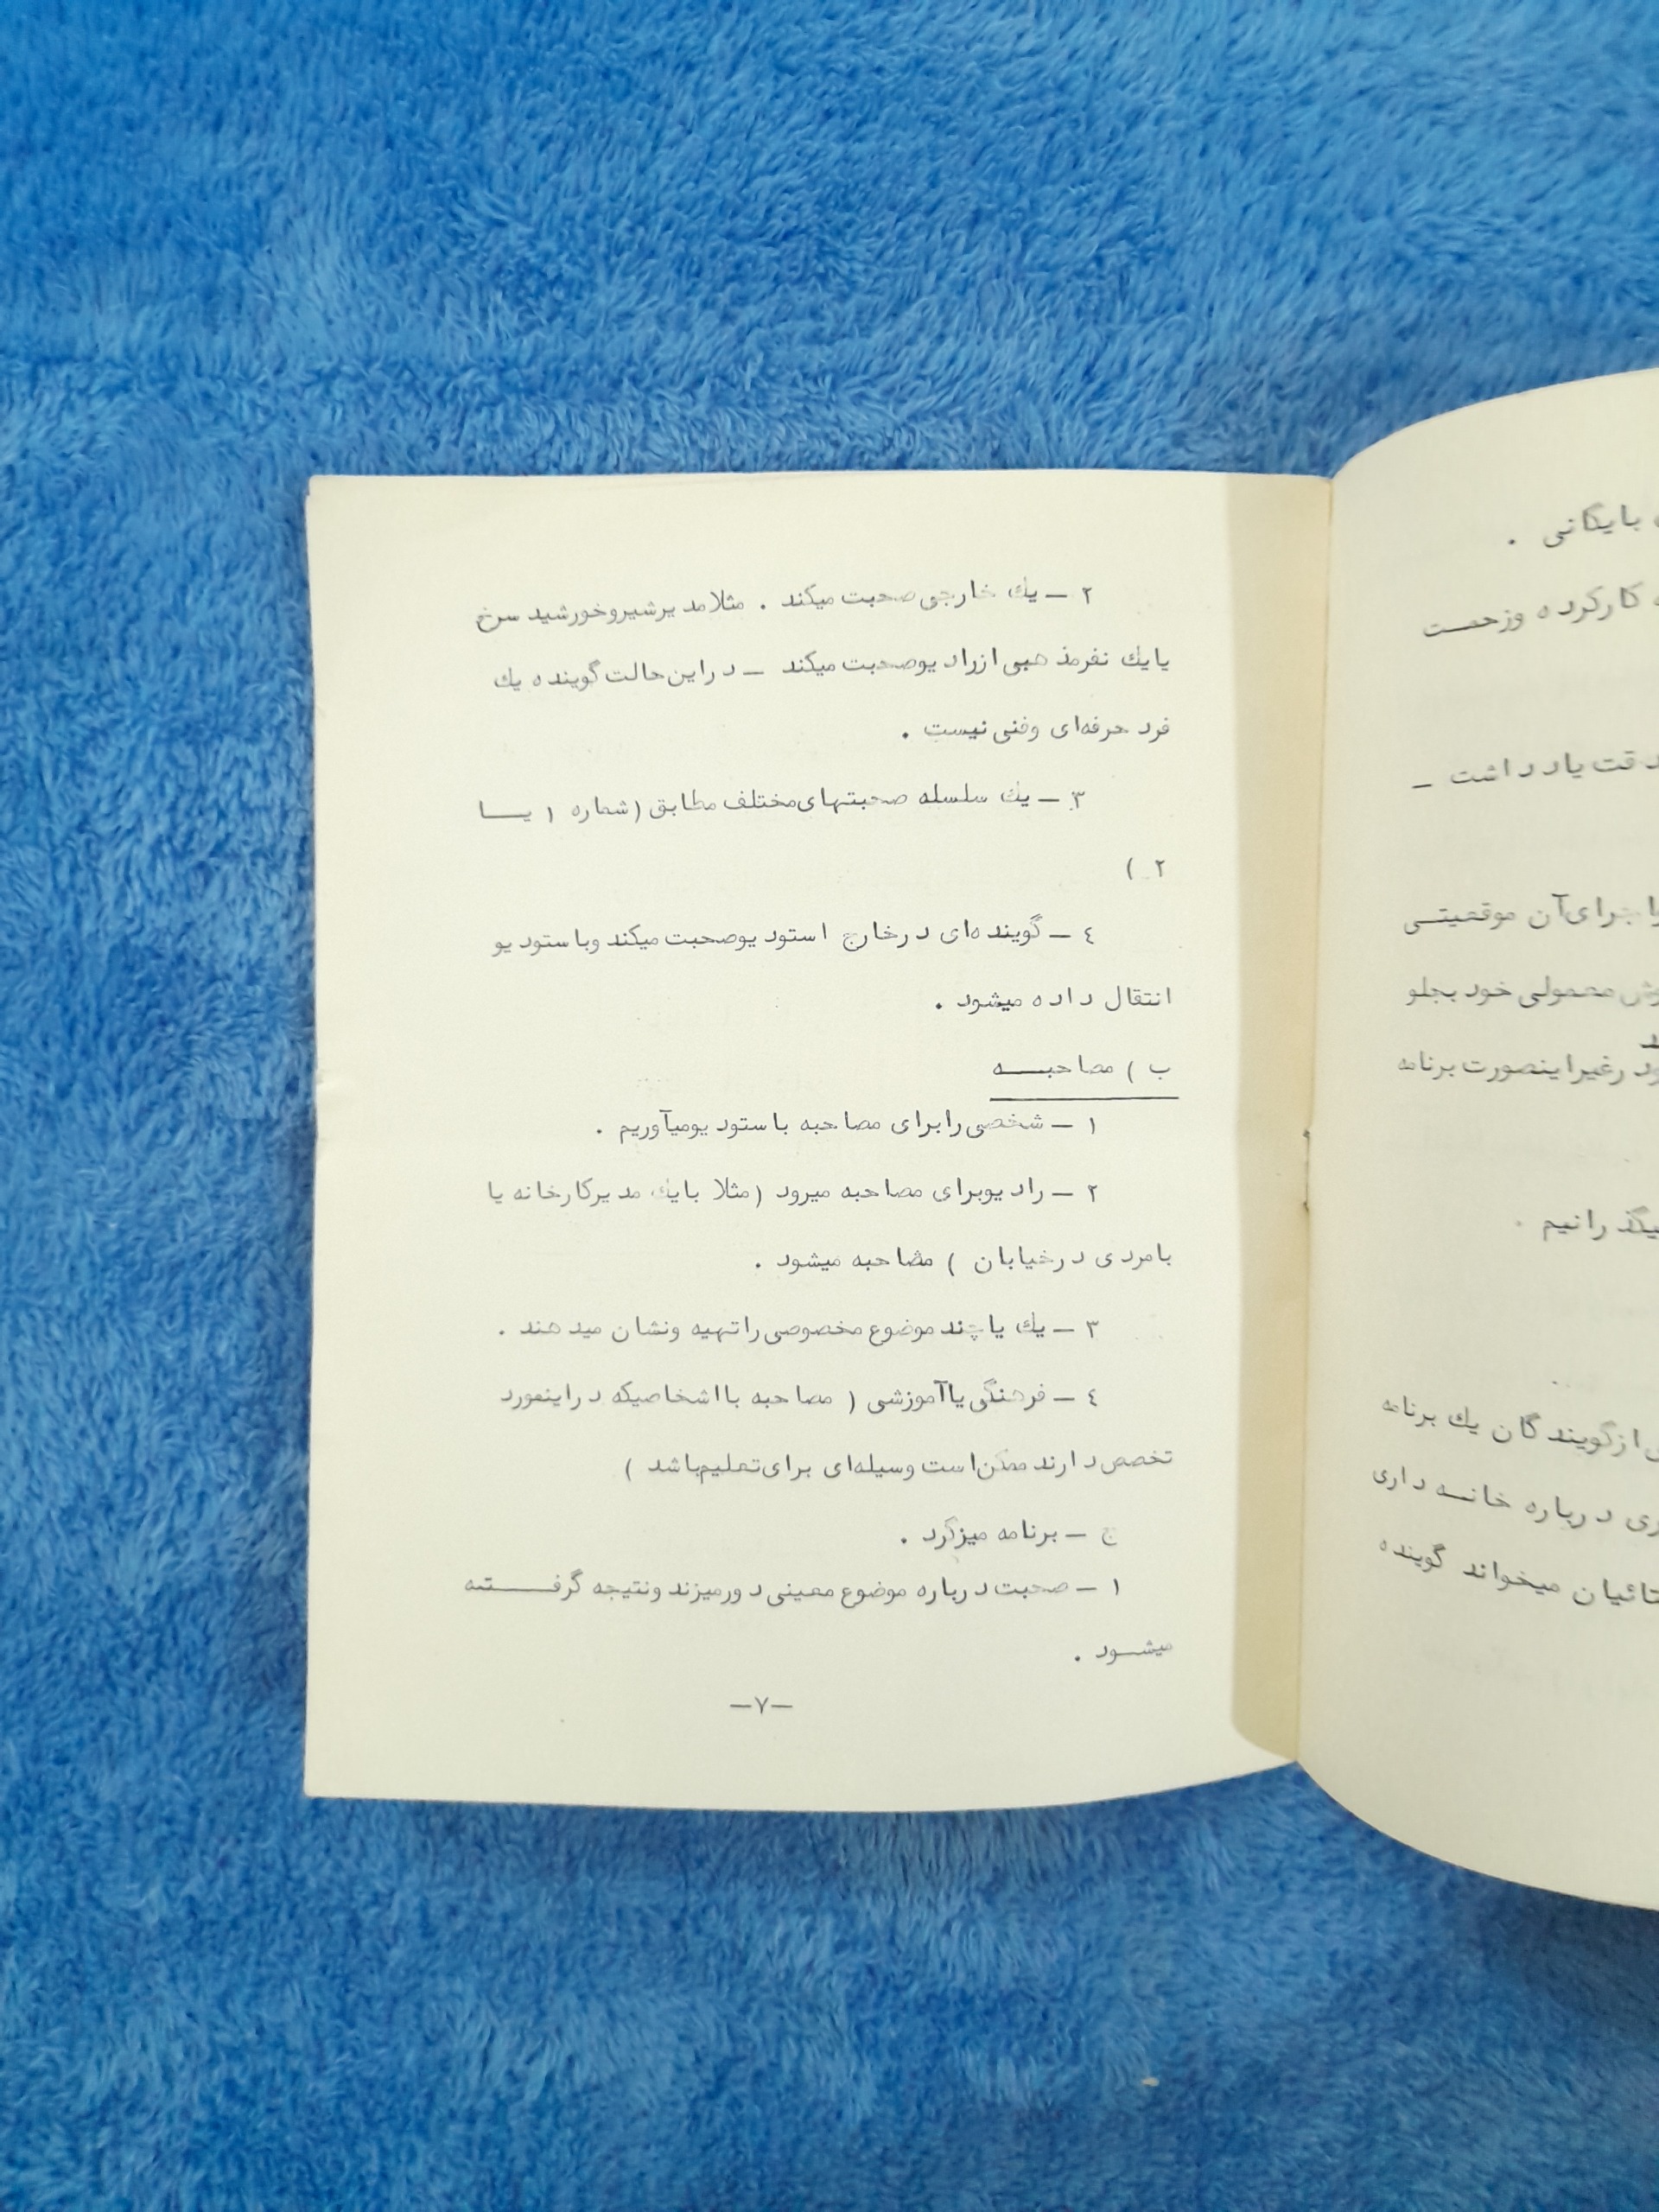 ۲ – يك خارجی صحبت میکند . مثلا مدیر شیروخورشید سرخ
یا يك نفر مذهبی از رادیو صحبت میکند – در این حالت گوینده يك
فرد حرفه‌ای وفنی نیست .
۳ – يك سلسله صحبتهای مختلف مطابق (شماره ۱ یــا
۲ )
٤ – گوینده‌ای در خارج استودیو صحبت میکند وباستودیو
انتقال داده میشود .
ب ) مصاحبـــه
۱ – شخصی را برای مصاحبه باستودیو میآوریم .
۲ – رادیو برای مصاحبه میرود (مثلا بايك مدیر کارخانه یا
بامردی در خیابان ) مصاحبه میشود .
۳ – يك یا چند موضوع مخصوصی را تهیه ونشان میدهند .
٤ – فرهنگی یا آموزشی ( مصاحبه با اشخاصیکه در اینمورد
تخصص دارند ممکن است وسیله‌ای برای تعلیم باشد )
ج – برنامه میزگرد .
۱ – صحبت درباره موضوع معینی دور میزند ونتیجه گرفـــته
میشــود .
–۷–
بایگانی .
کارکرده وزحمت
دقت یادداشت –
اجرای آن موقعیتــی
معمولی خود بجلو
در غیر اینصورت برنامه
میگذرانیم .
از گویندگان يك برنامه
درباره خانــه داری
میخواند گوینده